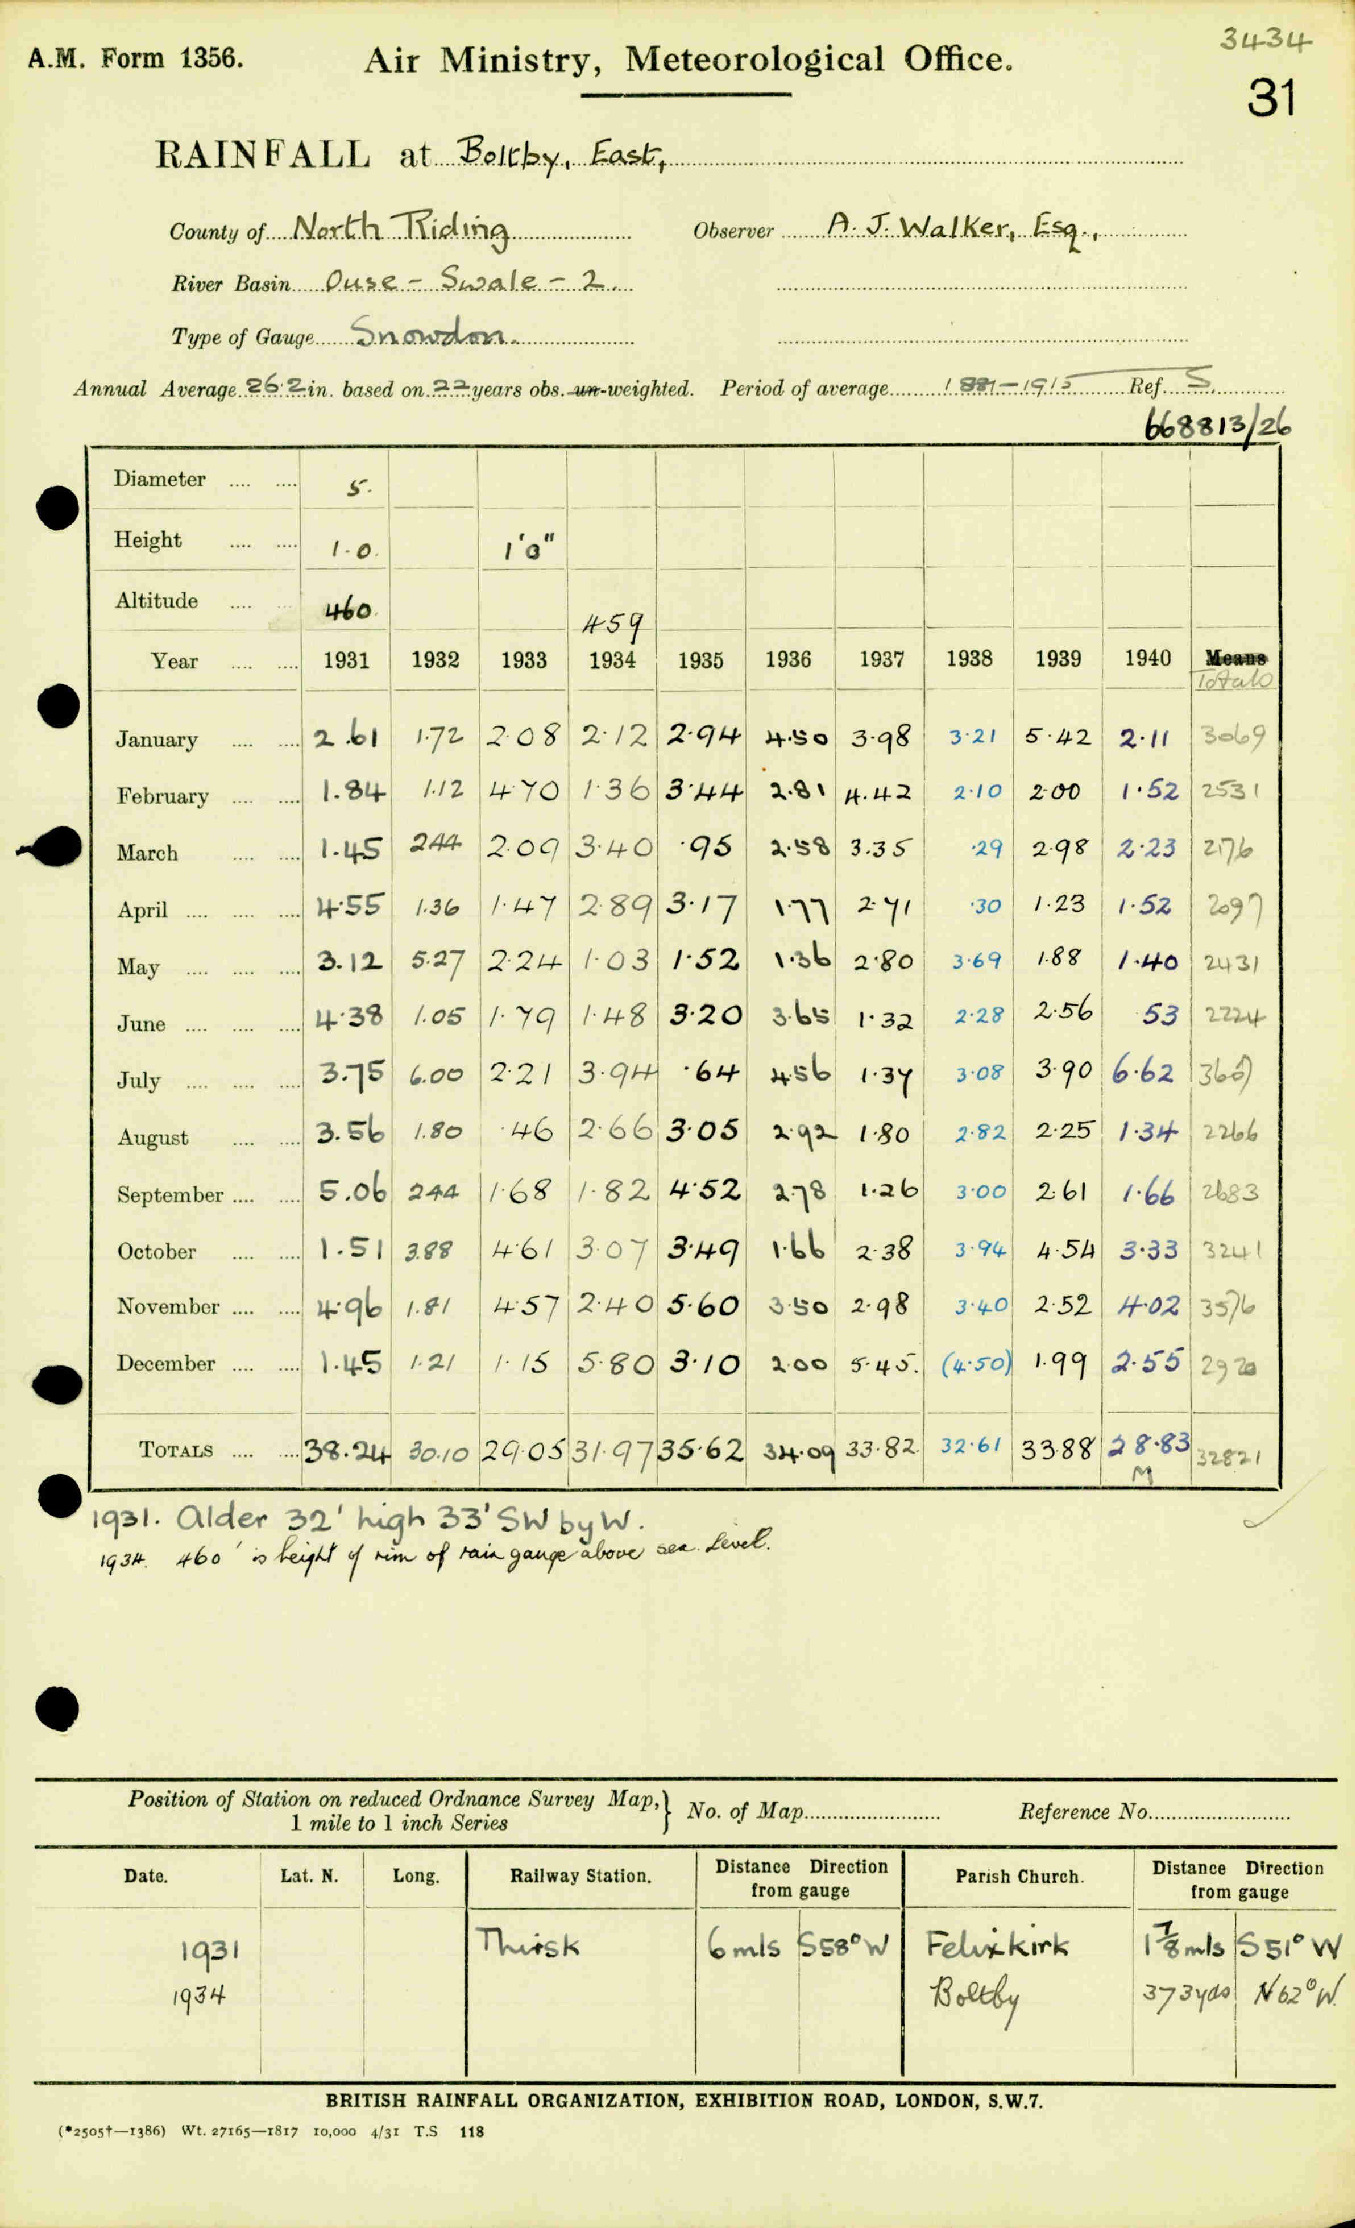 3434
A.M. Form 1356. Air Ministry, Meteorological Office.
31
RAINFALL at Boltby, East,
County of North Riding Observer A. J. Walker, Esq.,
River Basin Ouse - Swale - 2.
Type of Gauge Snowdon.
Annual Average 26.2 in. based on 22 years obs. un-weighted. Period of average 1881-1915 Ref. S.
668813/26
Diameter .... .... 5.
Height .... .... 1.0. 1'0"
Altitude .... 460. 459
Year .... .... 1931 1932 1933 1934 1935 1936 1937 1938 1939 1940 Means
Totals
January .... .... 2.61 1.72 2.08 2.12 2.94 4.50 3.98 3.21 5.42 2.11 3069
February .... .... 1.84 1.12 4.70 1.36 3.44 2.81 4.42 2.10 2.00 1.52 2531
March .... .... 1.45 2.44 2.09 3.40 .95 2.58 3.35 .29 2.98 2.23 2176
April .... .... .... 4.55 1.36 1.47 2.89 3.17 1.77 2.71 .30 1.23 1.52 2097
May .... .... .... 3.12 5.27 2.24 1.03 1.52 1.36 2.80 3.69 1.88 1.40 2431
June .... .... .... 4.38 1.05 1.79 1.48 3.20 3.65 1.32 2.28 2.56 53 2224
July .... .... .... 3.75 6.00 2.21 3.94 .64 4.56 1.37 3.08 3.90 6.62 3607
August .... .... 3.56 1.80 .46 2.66 3.05 2.92 1.80 2.82 2.25 1.34 2266
September .... .... 5.06 2.44 1.68 1.82 4.52 2.78 1.26 3.00 2.61 1.66 2683
October .... .... 1.51 3.88 4.61 3.07 3.49 1.66 2.38 3.94 4.54 3.33 3241
November .... .... 4.96 1.81 4.57 2.40 5.60 3.50 2.98 3.40 2.52 4.02 3576
December .... .... 1.45 1.21 1.15 5.80 3.10 2.00 5.45. (4.50) 1.99 2.55 2920
TOTALS .... .... 38.24 30.10 29.05 31.97 35.62 34.09 33.82 32.61 33.88 28.83 32821
M
1931. Alder 32' high 33' SW by W.
1934. 460' is height of rim of rain gauge above sea level.
Position of Station on reduced Ordnance Survey Map, } No. of Map Reference No.
1 mile to 1 inch Series
Date. Lat. N. Long. Railway Station. Distance Direction from gauge Parish Church. Distance Direction from gauge
1931 Thirsk 6 mls S58°W Felixkirk 1 7/8 mls S51°W
1934 Boltby 373 yds N62°W.
BRITISH RAINFALL ORGANIZATION, EXHIBITION ROAD, LONDON, S.W.7.
(*2505†—1386) Wt. 27165—1817 10,000 4/31 T.S 118